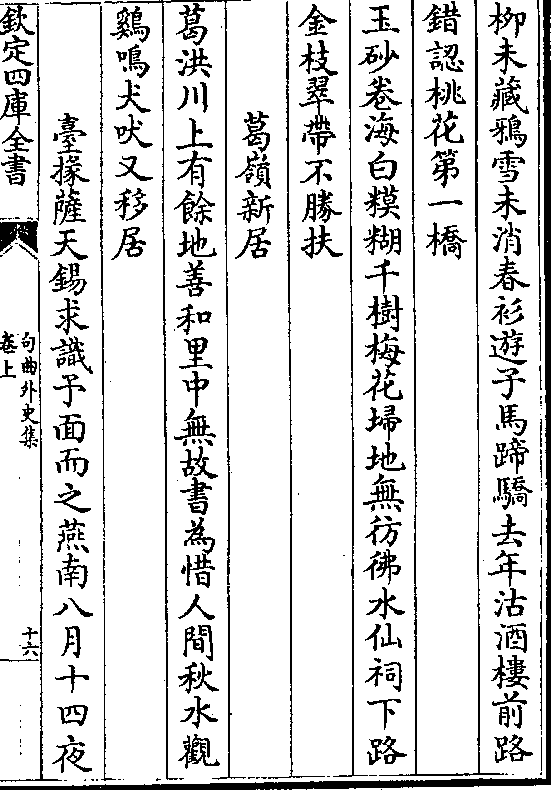 柳未藏鴉雪未消春衫遊子馬蹄驕去年沽酒樓前路
錯認桃花第一橋
玉砂卷海白糢糊千樹梅花埽地無彷彿水仙祠下路
金枝翠帶不勝扶
葛嶺新居
葛洪川上有餘地善和里中無故書為惜人間秋水觀
鷄鳴犬吠又移居
臺掾薩天錫求識予面而之燕南八月十四夜
欽定四庫全書
句曲外史集
卷上
十六